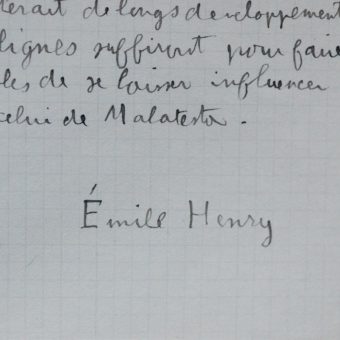 terait de longs développement
lignes suffiront pour faire
les de se laisser influencer
celui de Malatesta.
Émile Henry